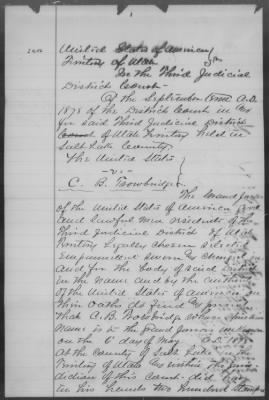 United States of America
Territory of Utah
In the Third Judicial
District Court
Of the September Term A.D.
1878 of the District Court in &
for said Third Judicial District
Court of Utah Territory held in
Salt Lake County.
The United States
-v-
C. B. Trowbridge
The Grand Jurors
of the United States of America good
and lawful men residents of the
Third Judicial District of Utah
Territory legally chosen selected
empannelled sworn & charged in
and for the body of said District
in the name and by the authority
of the United States of America on
their oaths do find &
that C. B. Trowbridge whose
name is to the Grand Jurors unknown
on the 6th day of May A.D. 1878
At the County of Salt Lake in the
Territory of Utah & within the
diction of this court did
in his hands two hundred stamps